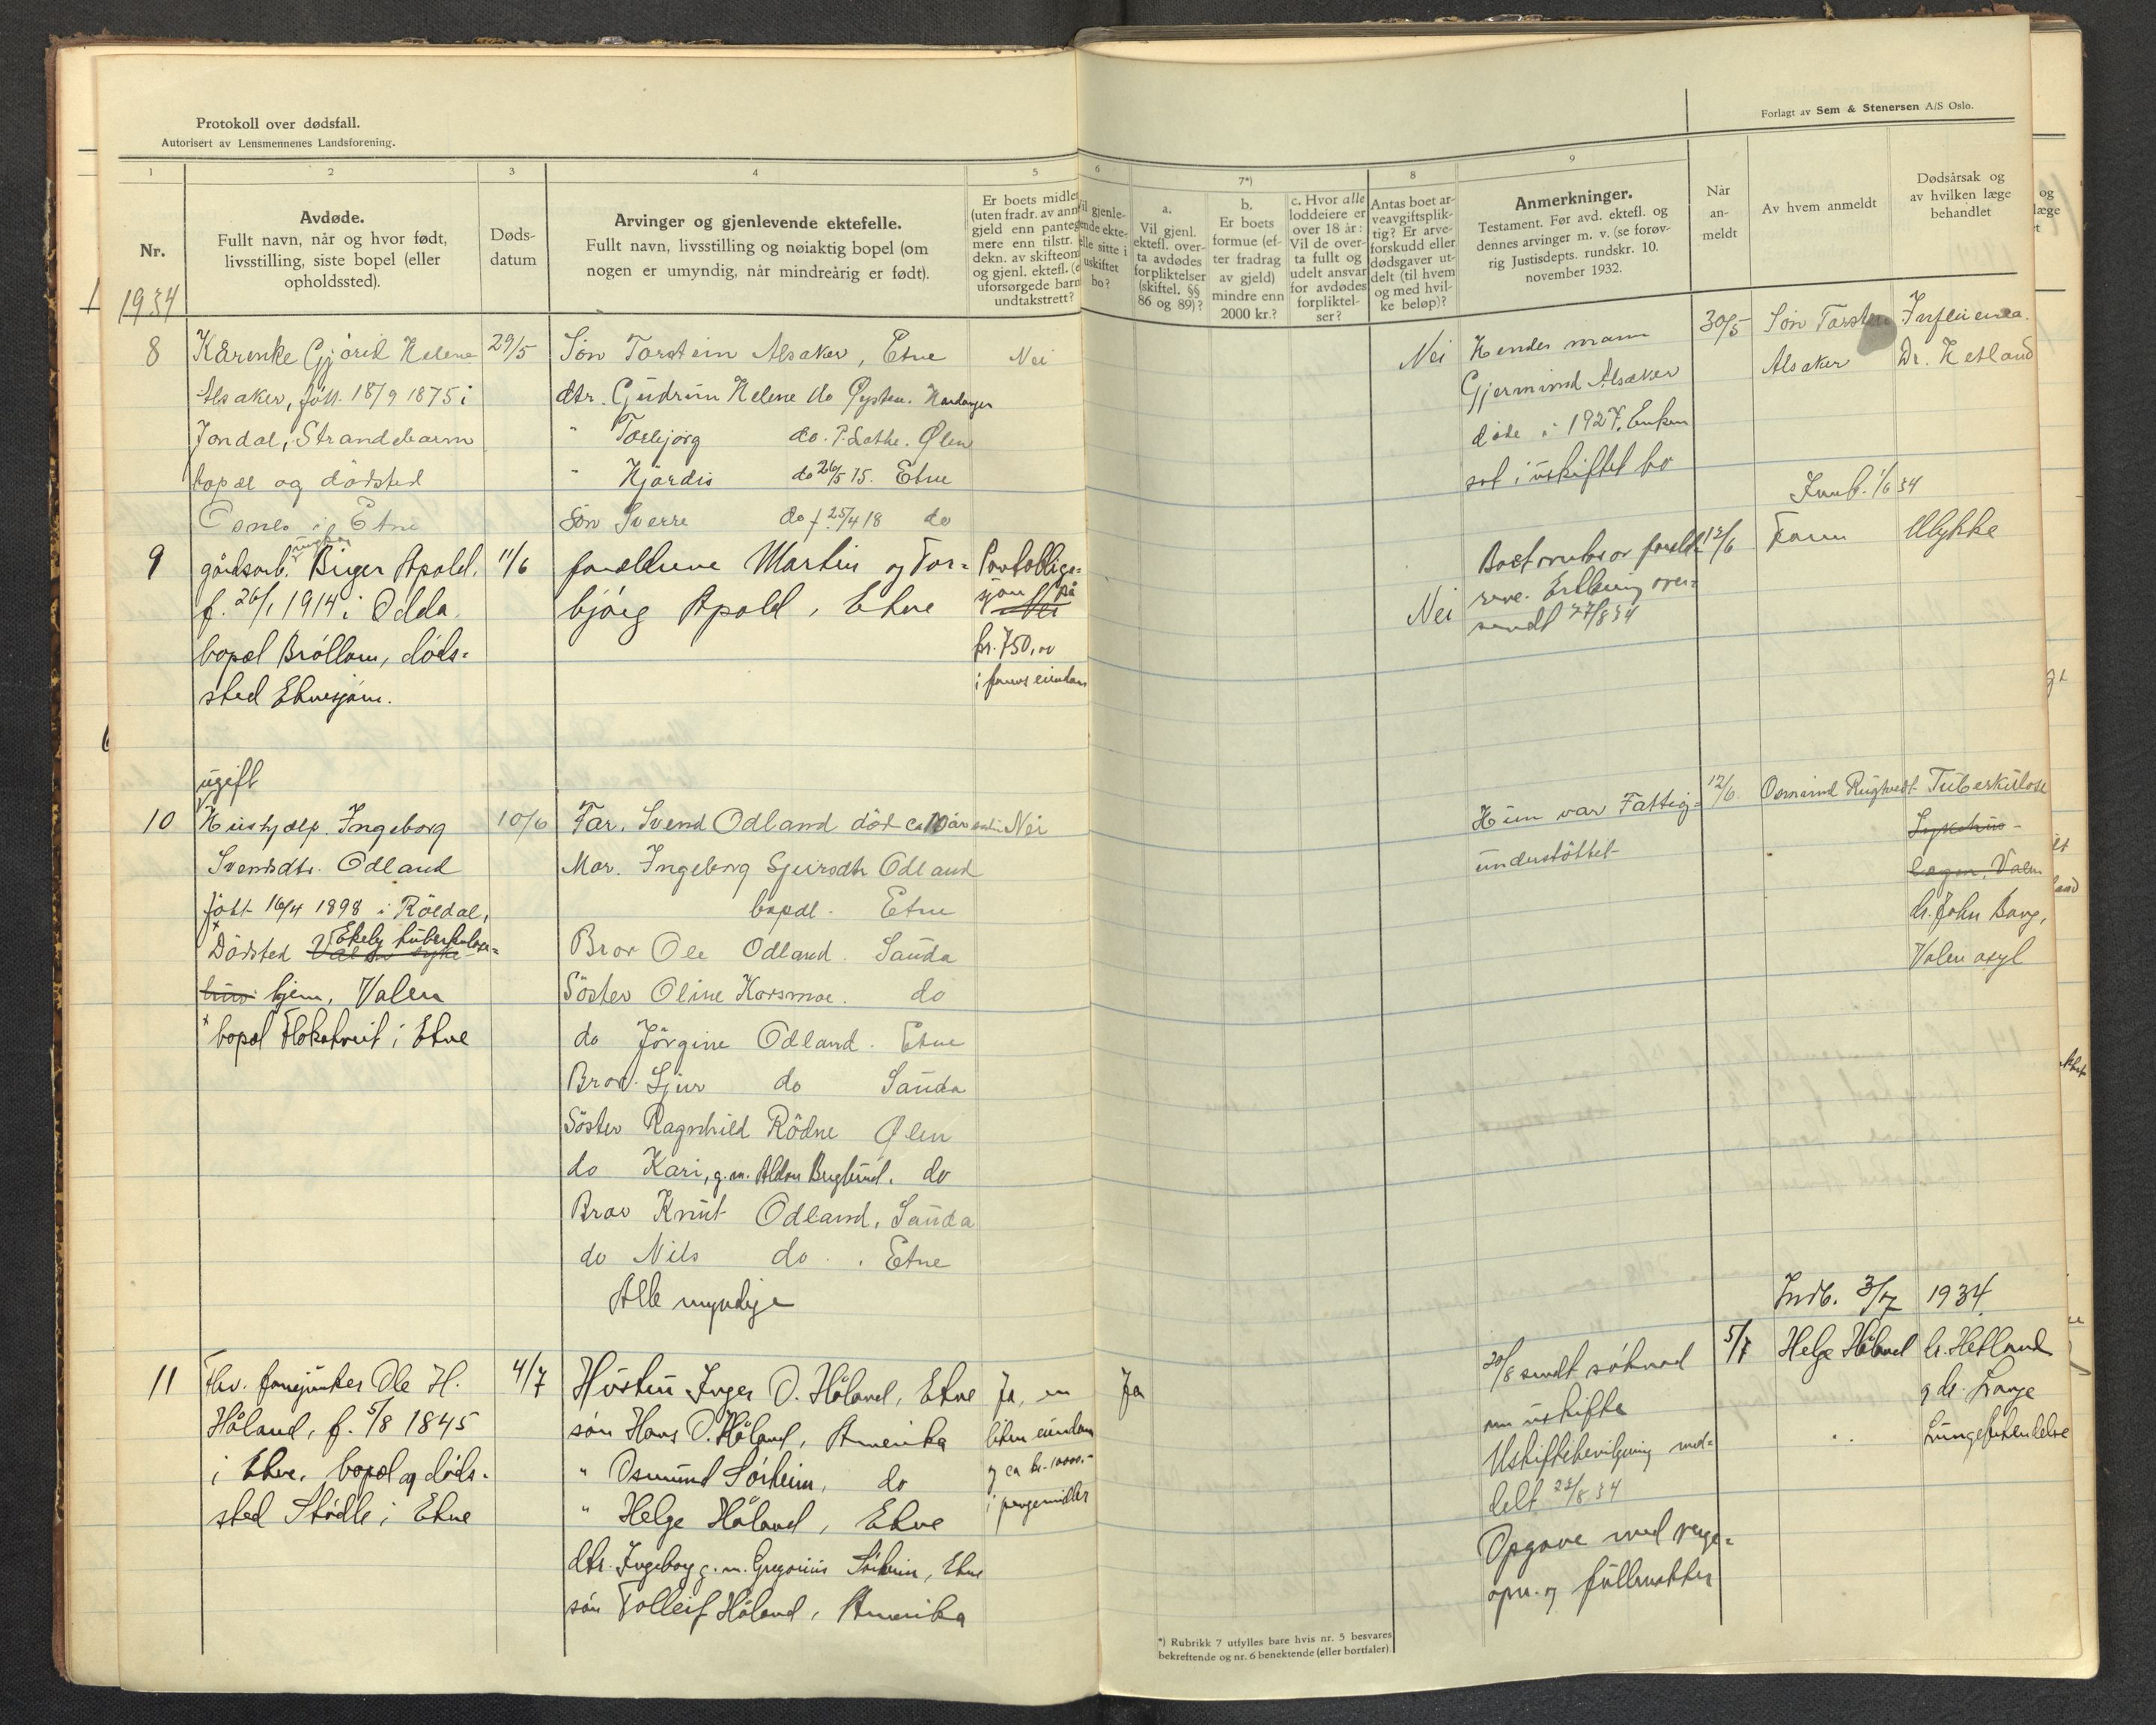 Protokoll over dødsfall.
Autorisert av Lensmennenes Landsforening.
Forlagt av Sem & Stenersen A/S Oslo.
1
2
3
4
5
6
7*)
8
9
Nr.
Avdøde.
Fullt navn, når og hvor født,
livsstilling, siste bopel (eller
opholdssted).
Døds-
datum
Arvinger og gjenlevende ektefelle.
Fullt navn, livsstilling og nøiaktig bopel (om
nogen er umyndig, når mindreårig er født).
Er boets midler
(uten fradr. av ann
gjeld enn pantegj
mere enn tilstr.
dekn. av skifteom
og gjenl. ektefl. (e
uforsørgede barn
undtakstrett?
Vil gjenle-
vende ekte-
felle sitte i
uskiftet
bo?
a.
Vil gjenl.
ektefl. over-
ta avdødes
forpliktelser
(skiftel. §§
86 og 89)?
b.
Er boets
formue (ef-
ter fradrag
av gjeld)
mindre enn
2000 kr.?
c. Hvor alle
loddeiere er
over 18 år:
Vil de over-
ta fullt og
udelt ansvar
for avdødes
forpliktel-
ser?
Antas boet ar-
veavgiftsplik-
tig? Er arve-
forskudd eller
dødsgaver ut-
delt (til hvem
og med hvil-
ke beløp)?
Anmerkninger.
Testament. Før avd. ektefl. og
dennes arvinger m. v. (se forøv-
rig Justisdepts. rundskr. 10.
november 1932.
Når
an-
meldt
Av hvem anmeldt
Dødsårsak og
av hvilken læge
behandlet
1934
8
Kårenke Gjørid Helene
Alsaker, født 18/9 1875 i
Jondal, Strandebarm
bopæl og dødsted
Osnes i Etne
29/5
Søn Torstein Alsaker, Etne
dtr. Gudrun Helene do Øysten. Hardanger
" Torbjørg do. P. Løthe. Ølen
" Hjørdis do 26/5 15. Etne
Søn Sverre do f. 25/4 18 do
Nei
Nei
Hendes mann
Gjermund Alsaker
døde i 1927. Enken
sat i uskiftet bo
30/5
Søn Torstein
Alsaker
Influensa.
Dr. Hetland
Innb. 1/6 34
9
ungkar
gårdsarb. Birger Apold.
f. 26/1 1914 i Odda.
bopæl Bröllom, døds-
sted Etnesjøen.
11/6
foreldrene Martin og Tor-
bjørg Apold, Etne
Pantobliga-
sjon på
Nei
kr. 750,00
i farens eiendom
Nei
Erklæring over-
sendt 27/8 34
12/6
Faren
Ulykke
10
ugift
Hushjælp. Ingeborg
Svendsdtr. Odland
født 16/4 1898 i Röldal,
Dödsted Valen syke-
Ekely tuberkulose-
hus hjem, Valen
x bopæl Flokatveit i Etne
10/6
Far. Svend Odland död ca 10 år siden
Mor. Ingeborg Sjursdtr Odland
bopæl. Etne
Bror Ole Odland. Sauda
Söster Oline Korsmoe. do
do Jörgine Odland. Etne
Bror. Sjur do Sauda
Söster Ragnhild Rödne Ølen
do Kari, g.m. Berglund. do
Bror Knut Odland, Sauda
do Nils do. Etne
Alle myndige
Nei
Hun var Fattig-
understöttet
12/6
Osmund Rugtvedt
Tuberkulose
Sykehus-
lægen, Valen
dr. John Bang,
Valen asyl
Innb. 3/7 1934
11
Fhv. fanejunker Ole H.
Håland, f. 5/8 1845
i Etne. bopæl og døds-
sted Stødle i Etne
4/7
Hustru Inger O. Håland, Etne
søn Hans O. Håland, Amerika
" Osmund Sørheim, do
" Helge Håland, Etne
dtr. Ingeborg g.m. Gregorius Sørheim, Etne
søn Tolleif Håland, Amerika
Ja, en
liten eiendom
og ca kr. 10000.-
i pengemidler
Ja
20/8 sendt søknad
om uskifte
Uskiftebevilgning med-
delt 22/8 34
Opgave med verge-
opn. og fullmakter
5/7
Helge Håland
dr. Hetland
og dr. Lange
Lungebetendelse
*) Rubrikk 7 utfylles bare hvis nr. 5 besvares
bekreftende og nr. 6 benektende (eller bortfaler).